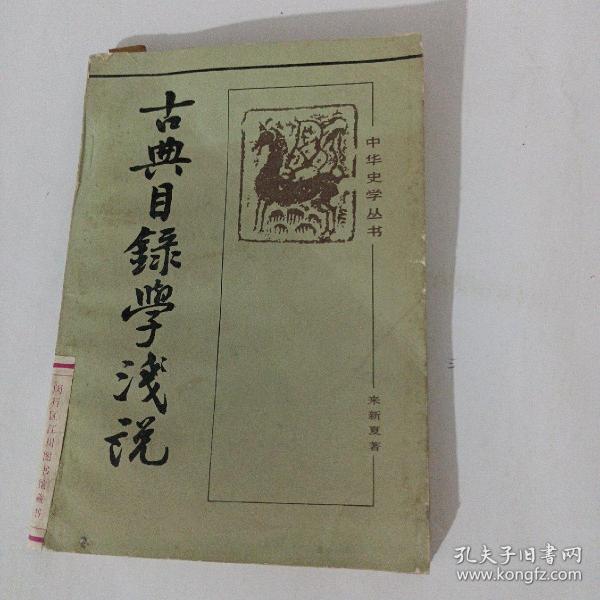 古典目録學淺説
中华史学丛书
来新夏著
闵行区江川图书馆藏书
2
孔夫子旧書网
www.kongfz.com